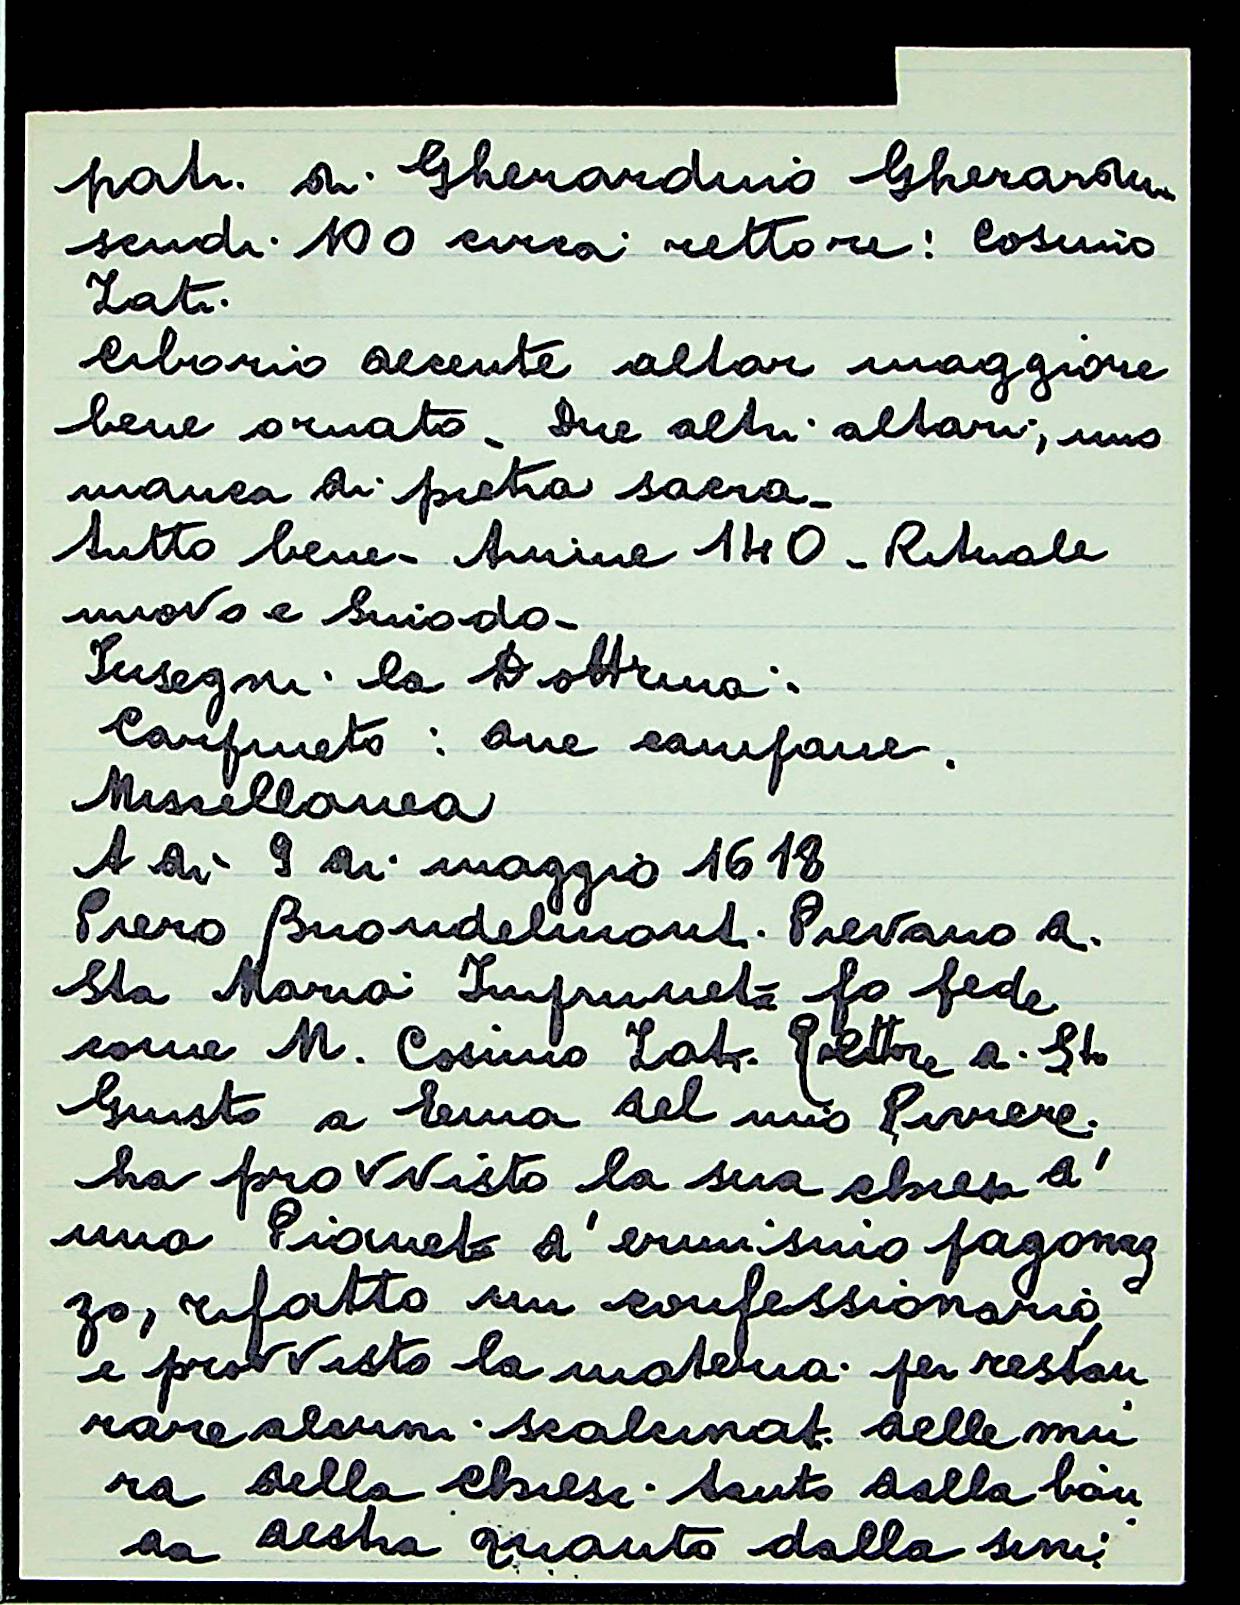 patr. di Gherarduio Gherardin
scudi 100 circa rettore: Cosimo
Zati.
Ciborio decente altar maggiore
bene ornato_ Due altri altari, uno
manca di pietra sacra_
tutto bene_ Anime 140_ Rituale
nuovo e Sinodo_
Insegni la Dottrina.
Carpineto: due campane.
Miscellanea
A dì 9 di maggio 1618
Piero Buondelmonti Pievano di
Sta Maria Impruneta fo fede
come M. Cosimo Zati Rettore di Sto
Giusto a Ema del mio Piviere
ha provvisto la sua chiesa d'
una Pianeta d'ermisino pagonaz
zo, rifatto un confessionario,
e provvisto la materia per restau
rare alcuni scalcinati delle mu
ra della chiesa tanto dalla ban
da destra quanto dalla sini